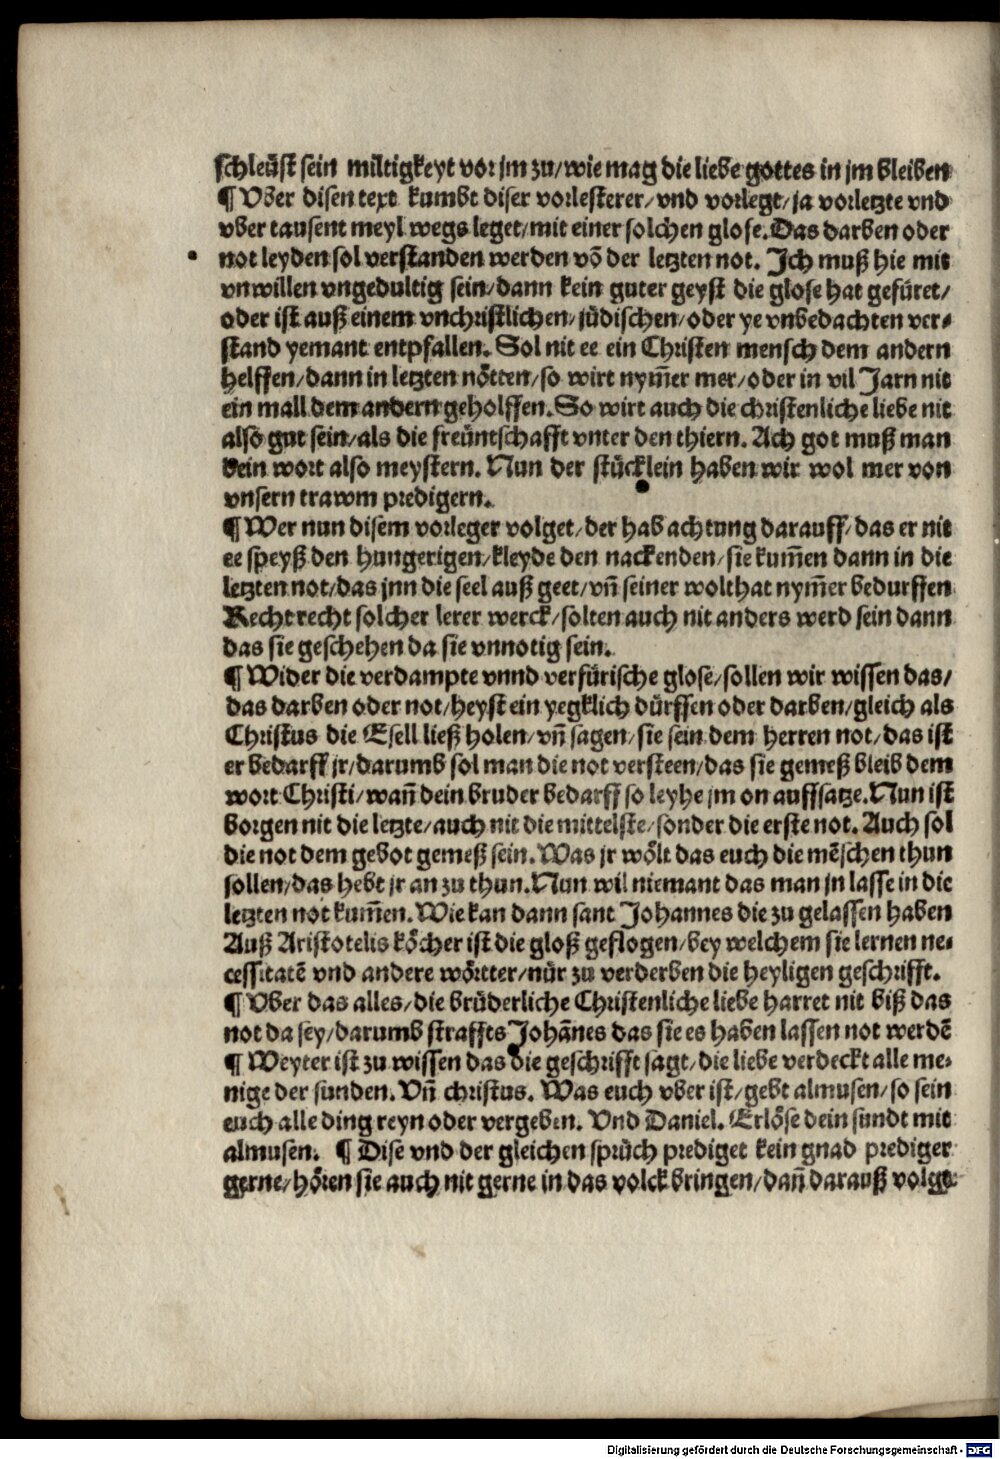 schleüst sein miltigkeyt vor jm zu/ wie mag die liebe gottes in jm bleiben
¶ Vber disen text kumbt diser vorlesterer/ vnd vorlegt/ ja vorletzte vnd
vber tausent meyl wegs leget/ mit einer solchen glose. Das darben oder
not leyden sol verstanden werden võ der letzten not. Jch muß hie mit
vnwillen vngedultig sein/ dann kein guter geyst die glose hat gefüret/
oder ist auß einem vnchristlichen/ jüdischen/ oder ye vnbedachten ver⸗
stand yemant entpfallen. Sol nit ee ein Christen mensch dem andern
helffen/ dann in letzten nötten/ so wirt nym̃er mer/ oder in vil Jarn nit
ein mall dem andern geholffen. So wirt auch die christenliche liebe nit
also gut sein/ als die freüntschafft vnter den thiern. Ach got muß man
dein wort also meystern. Nun der stücklein haben wir wol mer von
vnsern trawm predigern.
¶ Wer nun disem vorleger volget/ der hab achtung darauff/ das er nit
ee speyß den hungerigen/ kleyde den nackenden/ sie kum̃en dann in die
letzten not/ das jnn die seel auß geet/ vñ seiner wolthat nym̃er bedurffen
Recht recht solcher lerer werck/ solten auch nit anders werd sein dann
das sie geschehen da sie vnnotig sein.
¶ Wider die verdampte vnnd verfürische glose/ sollen wir wissen das/
das darben oder not/ heyst ein yegklich dürffen oder darben/ gleich als
Christus die Esell ließ holen/ vñ sagen/ sie sein dem herren not/ das ist
er bedarff jr/ darumb sol man die not versteen/ das sie gemeß bleib dem
wort Christi/ wañ dein bruder bedarff so leyhe jm on auffsatze. Nun ist
borgen nit die letzte/ auch nit die mittelste/ sonder die erste not. Auch sol
die not dem gebot gemeß sein. Was jr wölt das euch die mẽschen thun
sollen/ das hebt jr an zu thun. Nun wil niemant das man jn lasse in die
letzten not kum̃en. Wie kan dann sant Johannes die zu gelassen haben
Auß Aristotelis köcher ist die gloß geflogen/ bey welchem sie lernen ne⸗
cessitatẽ vnd andere wörtter/ nür zu verderben die heyligen geschrifft.
¶ Vber das alles/ die brüderliche Christenliche liebe harret nit biß das
not da sey/ darumb straffts Johãnes das sie es haben lassen not werdẽ
¶ Weyter ist zu wissen das die geschrifft sagt/ die liebe verdeckt alle me⸗
nige der sunden. Vñ christus. Was euch vber ist/ gebt almusen/ so sein
euch alle ding reyn oder vergeben. Vnd Daniel. Erlöse dein sundt mit
almusen. ¶ Dise vnd der gleichen sprüch prediget kein gnad prediger
gerne/ hören sie auch nit gerne in das volck bringen/ dañ darauß volgt
Digitalisierung gefördert durch die Deutsche Forschungsgemeinschaft - DFG